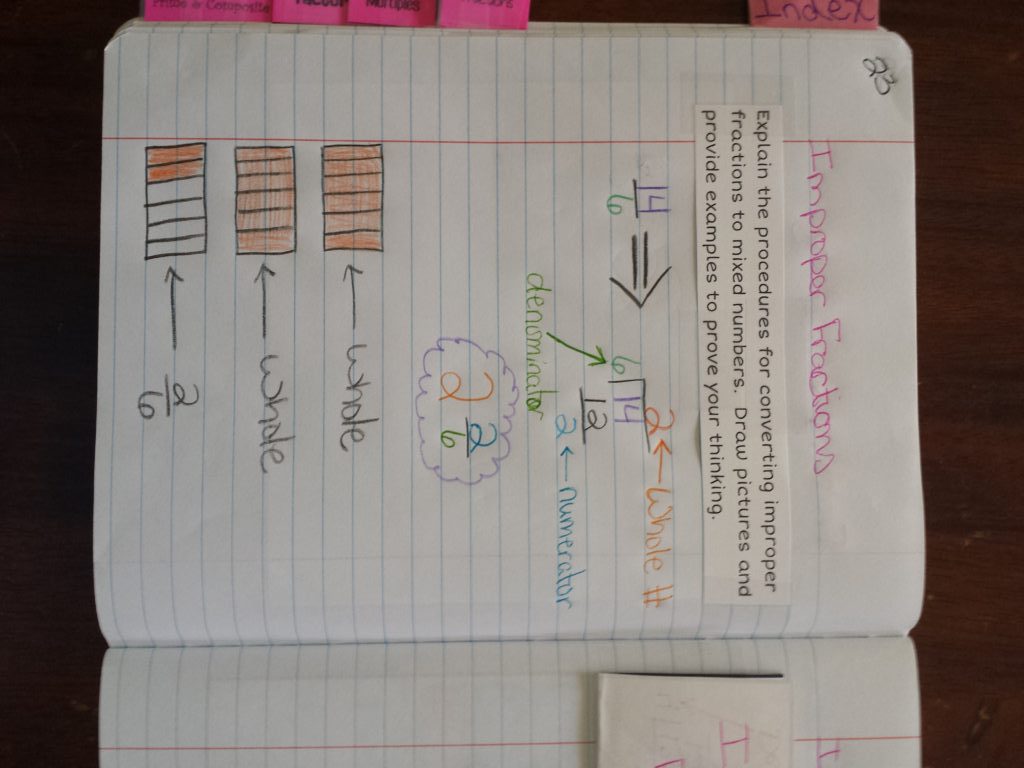 Prime & Composite
Factor
Multiples
Index
23
Improper Fractions
Explain the procedures for converting improper
fractions to mixed numbers. Draw pictures and
provide examples to prove your thinking.
2 ← Whole #
14/6 ⇒ 6⟌14
12
2 ← numerator
denominator
2 2/6
← whole
← whole
← 2/6